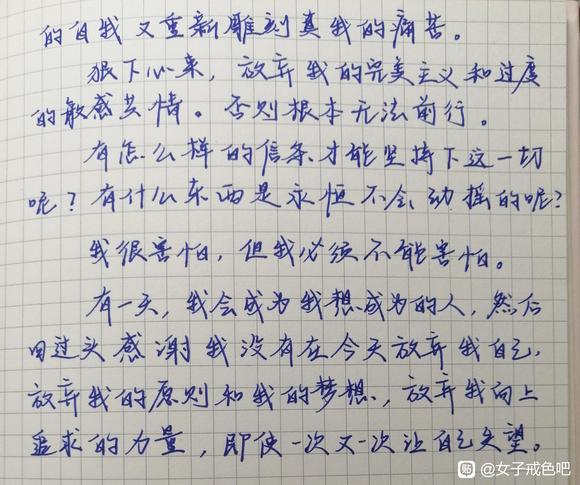 的自我又重新雕刻真我的痛苦。
狠下心来，放弃我的完美主义和过度
的敏感共情。否则根本无法前行。
有怎么样的信条才能坚持下这一切
呢？有什么东西是永恒不会动摇的呢？
我很害怕，但我必须不能害怕。
有一天，我会成为我想成为的人，然后
回过头感谢我没有在今天放弃我自己，
放弃我的原则和我的梦想，放弃我向上
追求的力量，即使一次又一次让自己失望。
贴 @女子戒色吧